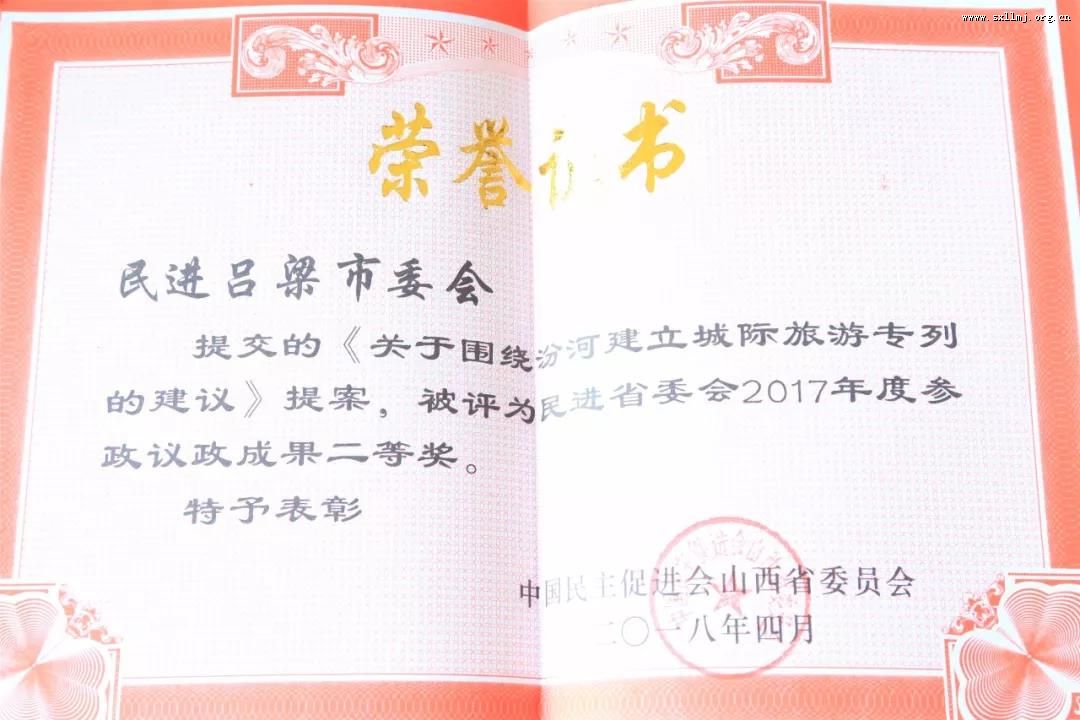 www.sxllmj.org.cn
荣誉证书
民进吕梁市委会
提交的《关于围绕汾河建立城际旅游专列
的建议》提案，被评为民进省委会2017年度参
政议政成果二等奖。
特予表彰
中国民主促进会山西省委员会
二〇一八年四月